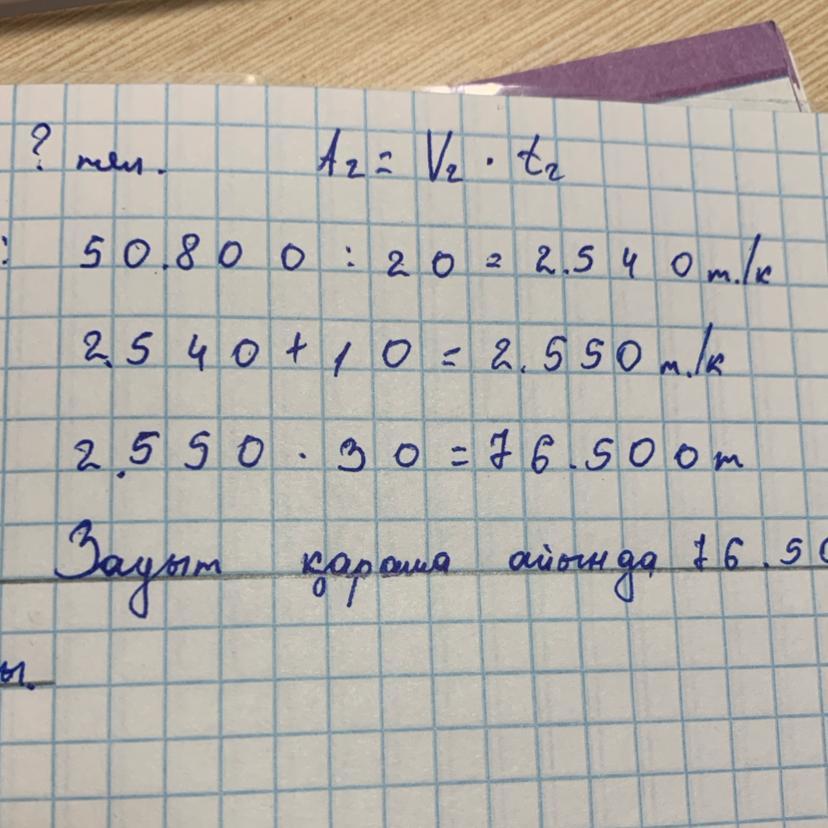 ? тел. A₂ = V₂ · t₂
: 50.800 : 20 = 2.540 т./к
2.540 + 10 = 2.550 т./к
2.550 · 30 = 76.500 т
Зауыт қараша айында 76.50
ы.